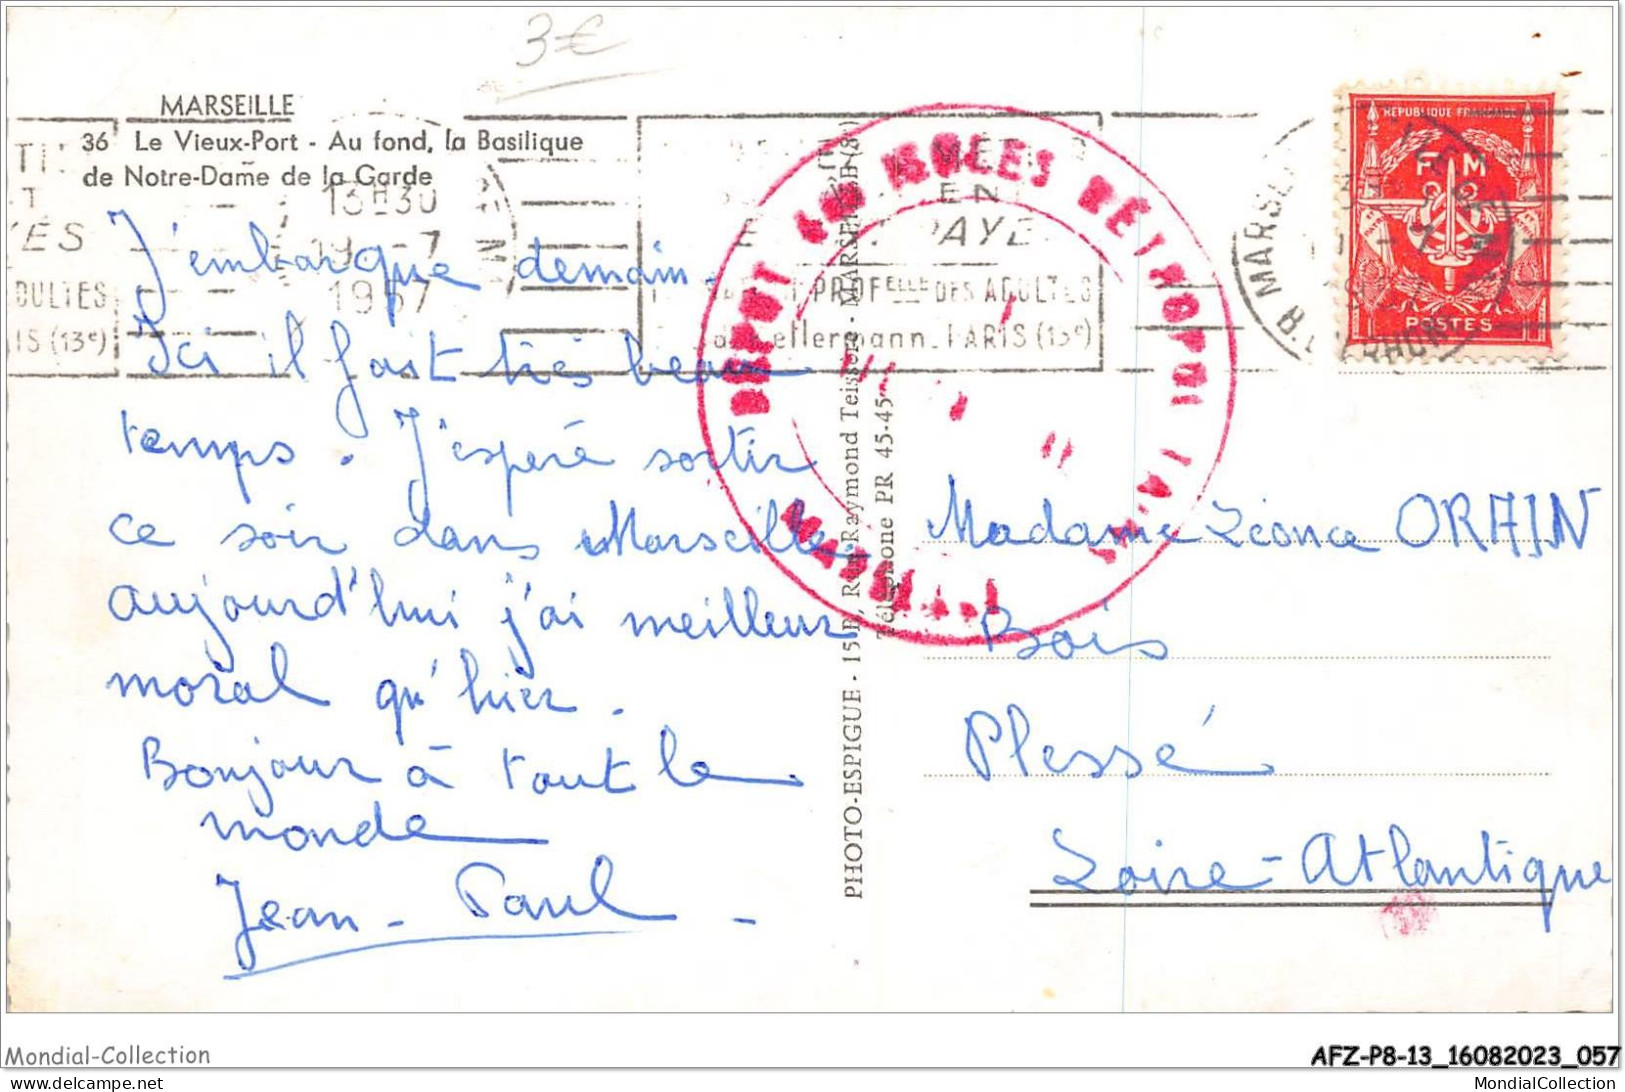 3€
MARSEILLE
36 Le Vieux-Port - Au fond, la Basilique
de Notre-Dame de la Garde
13H30
19 - 7
1957
J'embarque demain.
Ici il fait très beau
temps. J'espère sortir
ce soir dans Marseille.
aujourd'hui j'ai meilleur
moral qu'hier.
Bonjour à tout le
monde
Jean-Paul
PHOTO-ESPIGUE - 15 B, Rue Raymond Teisseire - MARSEILLE (8e)
Téléphone PR 45-45
PROFELLE DES ADULTES
Kellermann. PARIS (13e)
OULTES
IS (13e)
DEPOT
MARSEILLE
RÉPUBLIQUE FRANÇAISE
F M
POSTES
Madame Léonce ORAIN
Bois
Plessé
Loire-Atlantique
Mondial-Collection
AFZ-P8-13_16082023_057
www.delcampe.net
MondialCollection